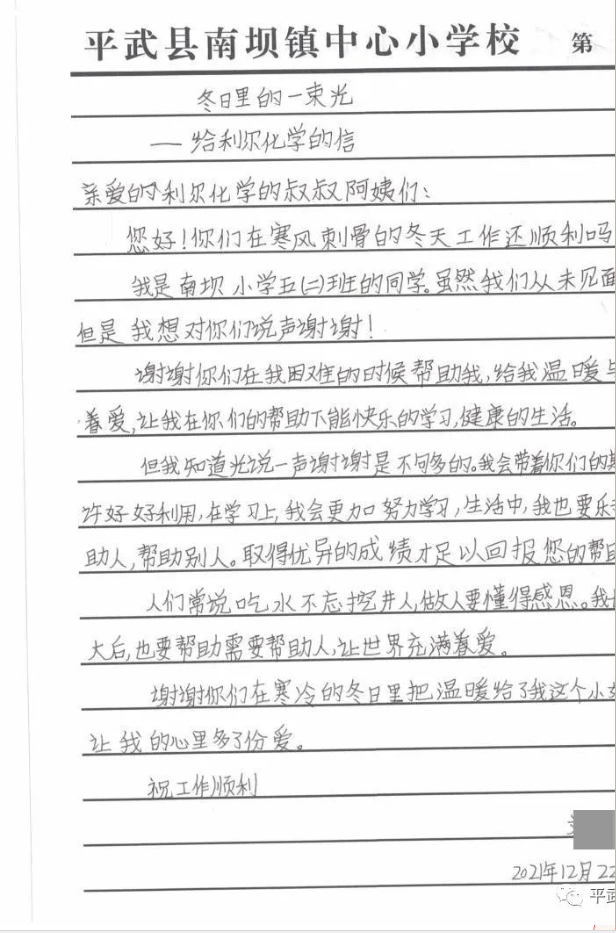 平武县南坝镇中心小学校 第
冬日里的一束光
——给利尔化学的信
亲爱的利尔化学的叔叔阿姨们：
您好！你们在寒风刺骨的冬天工作还顺利吗
我是南坝小学五(二)班的同学。虽然我们从未见面
但是我想对你们说声谢谢！
谢谢你们在我困难的时候帮助我，给我温暖与
着爱，让我在你们的帮助下能快乐的学习，健康的生活。
但我知道光说一声谢谢是不够多的。我会带着你们的期
许好好利用，在学习上，我会更加努力学习，生活中，我也要乐
助人，帮助别人。取得优异的成绩才足以回报您的帮助
人们常说吃水不忘挖井人，做人要懂得感恩。我
大后，也要帮助需要帮助人，让世界充满着爱。
谢谢你们在寒冷的冬日里把温暖给了我这个小
让我的心里多了份爱。
祝工作顺利
2021年12月22
平武